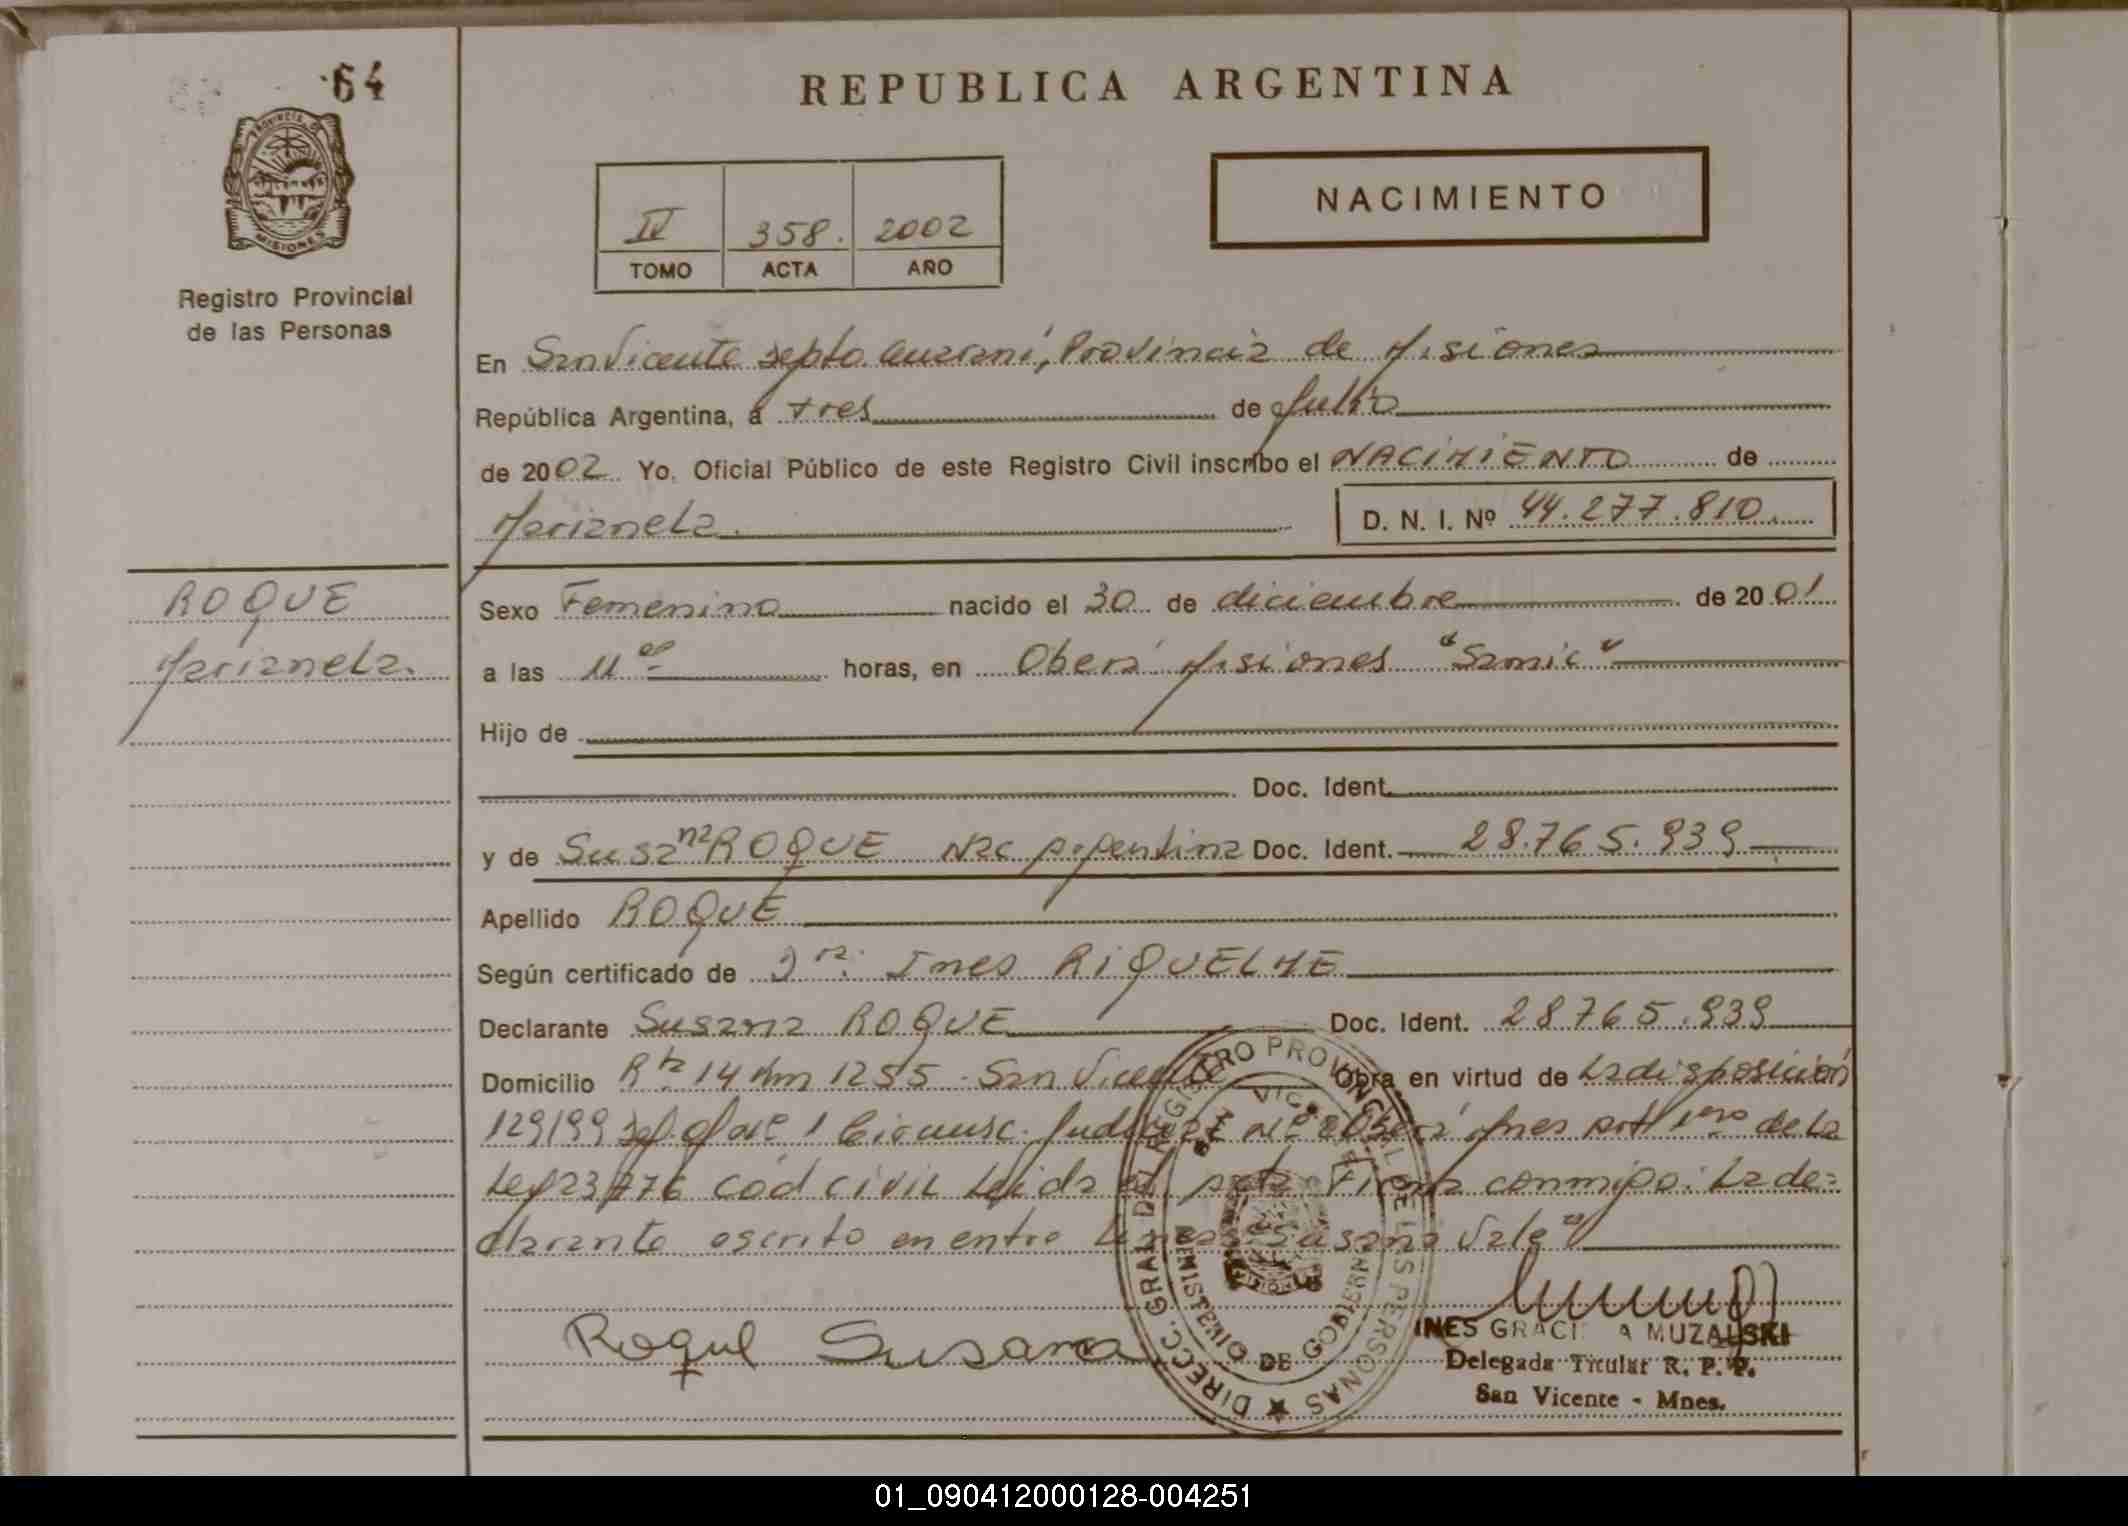 64
REPUBLICA ARGENTINA
PROVINCIA DE
MISIONES
Registro Provincial
de las Personas
IV 358. 2002
TOMO ACTA AÑO
NACIMIENTO
En San Vicente depto. Guaraní, Provincia de Misiones
República Argentina, a tres de Julio
de 2002 Yo. Oficial Público de este Registro Civil inscribo el NACIMIENTO de
Marianela. D. N. I. Nº 44.277.810.
ROQUE
Marianela.
Sexo Femenino nacido el 30 de diciembre de 2001
a las 11 horas, en Oberá Misiones "Samic"
Hijo de
Doc. Ident.
y de Susana ROQUE Nac Argentina Doc. Ident. 28.765.939
Apellido ROQUE
Según certificado de Dra. Ines RIQUELME
Declarante Susana ROQUE Doc. Ident. 28765.939
Domicilio Rta 14 Km 1255 - San Vicente Obra en virtud de La disposición
129/99 1 Circunsc. Oberá Mnes art 1ero de La
Ley 23776 cód civil Leida el acta Firma conmigo: La de=
clarante escrito en entre Lineas "Susana Vale"
Roque Susana
DIRECC. GRAL DEL REGISTRO PROVINCIAL DE LAS PERSONAS
SAN VICENTE
MINISTERIO DE GOBIERNO
INES GRACI A MUZALSKI
Delegada Titular R. P. P.
San Vicente - Mnes.
01_090412000128-004251